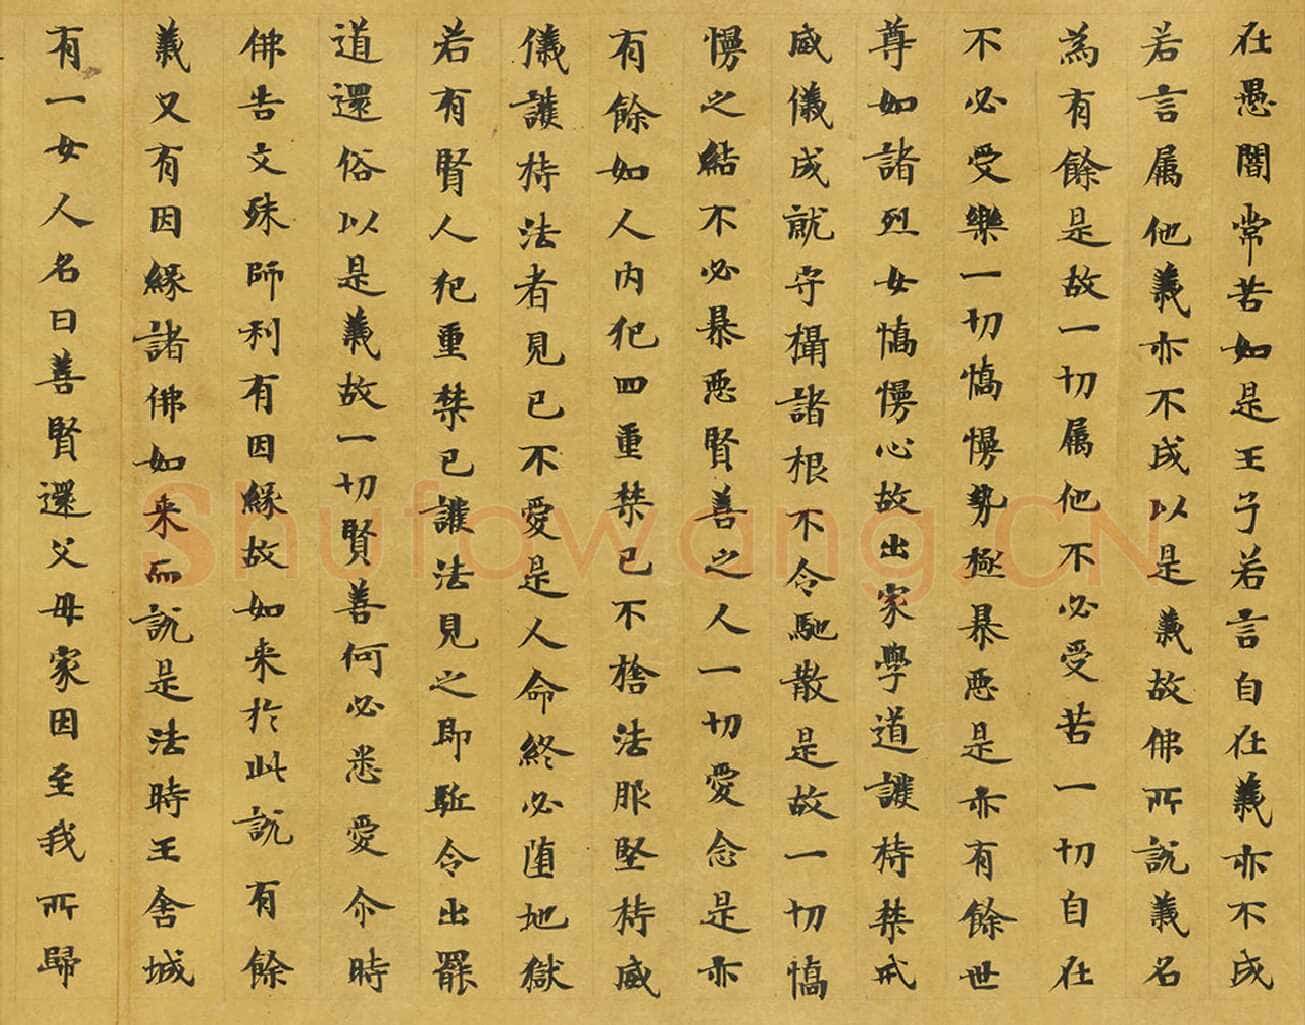 在愚闇常苦如是王子若言自在義亦不成
若言属他義亦不成以是義故佛所説義名
為有餘是故一切属他不必受苦一切自在
不必受樂一切憍慢勢極暴惡是亦有餘世
尊如諸烈女憍慢心故出家學道護持禁戒
威儀成就守攝諸根不令馳散是故一切憍
慢之結不必暴惡賢善之人一切愛念是亦
有餘如人内犯四重禁已不捨法服堅持威
儀護持法者見已不愛是人命終必堕地獄
若有賢人犯重禁已護法見之即駈令出罷
道還俗以是義故一切賢善何必悉愛尒時
佛告文殊師利有因縁故如来於此説有餘
義又有因縁諸佛如来而説是法時王舍城
有一女人名曰善賢還父母家因至我所歸
Shufawang.CN